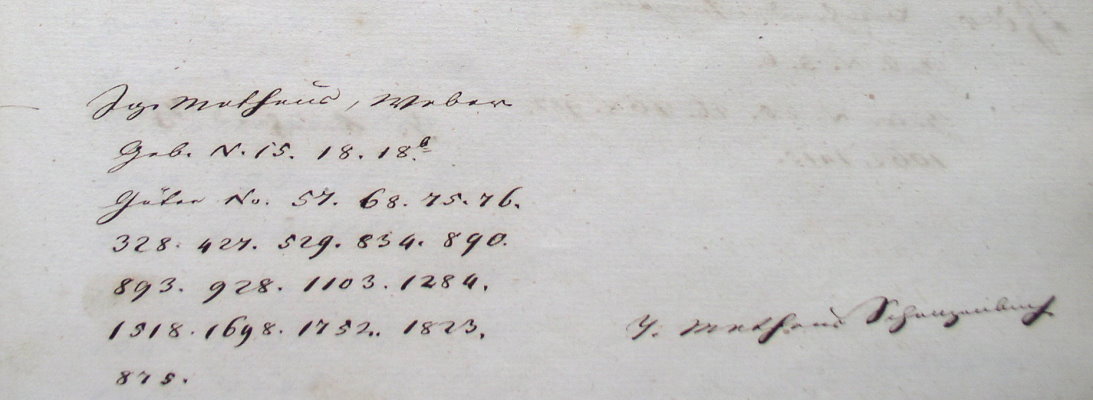 Jg. Matheus, Weber
Geb. N. 15. 18. 18.b
Güter No. 57. 68. 75. 76.
328. 427. 529. 834. 890.
893. 928. 1103. 1284.
1518. 1698. 1752. 1823.
875.
J. Matheus